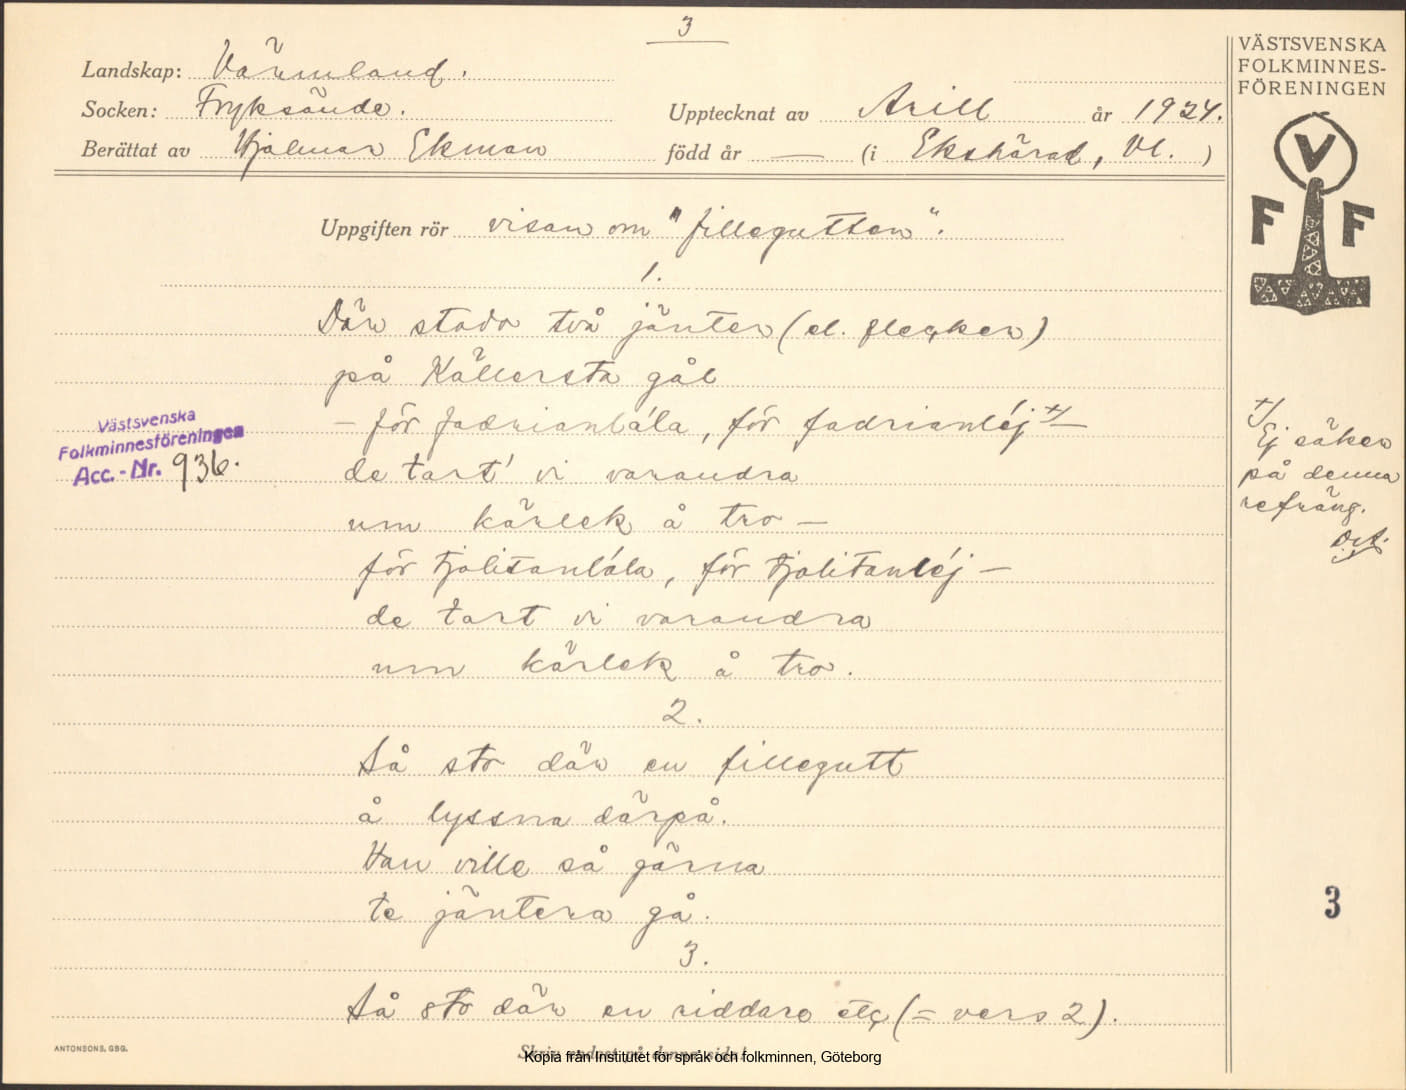 3
Landskap: Värmland.
Socken: Fryksände.
Upptecknat av Arill år 1924.
Berättat av Hjalmar Ekman född år — (i Ekshärad, Vl. )
VÄSTSVENSKA
FOLKMINNES-
FÖRENINGEN
V
F F
Uppgiften rör visan om "fillegutten".
1.
Där stador två jänter (el. flecker)
på Källersta gål
– för fadrianlála, för fadrianléj x/ –
x/ Ej säker
på denna
refräng.
D.A.
Västsvenska
Folkminnesföreningen
Acc.-Nr. 936.
de tart' vi varandra
um kärlek å tro –
för tjolitanlála, för tjolitanléj –
de tart vi varandra
um kärlek å tro.
2.
Så sto där en fillegutt
å lyssna därpå.
Han ville så gärna
te jäntera gå.
3
3.
Så sto där en riddare etc (= vers 2).
ANTONSONS, GBG.
Skriv endast på denna sida!
Kopia från Institutet för språk och folkminnen, Göteborg